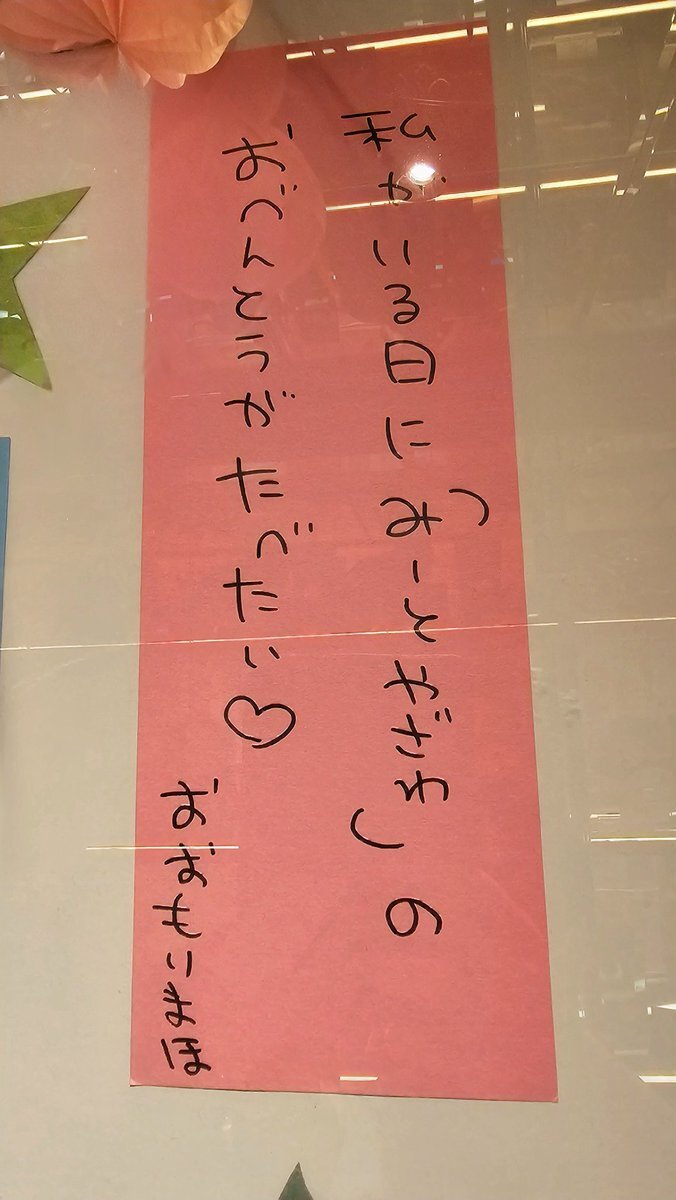 私がいる日に「みーとやざわ」の
おべんとうがたべたい♡
おおもりまほ